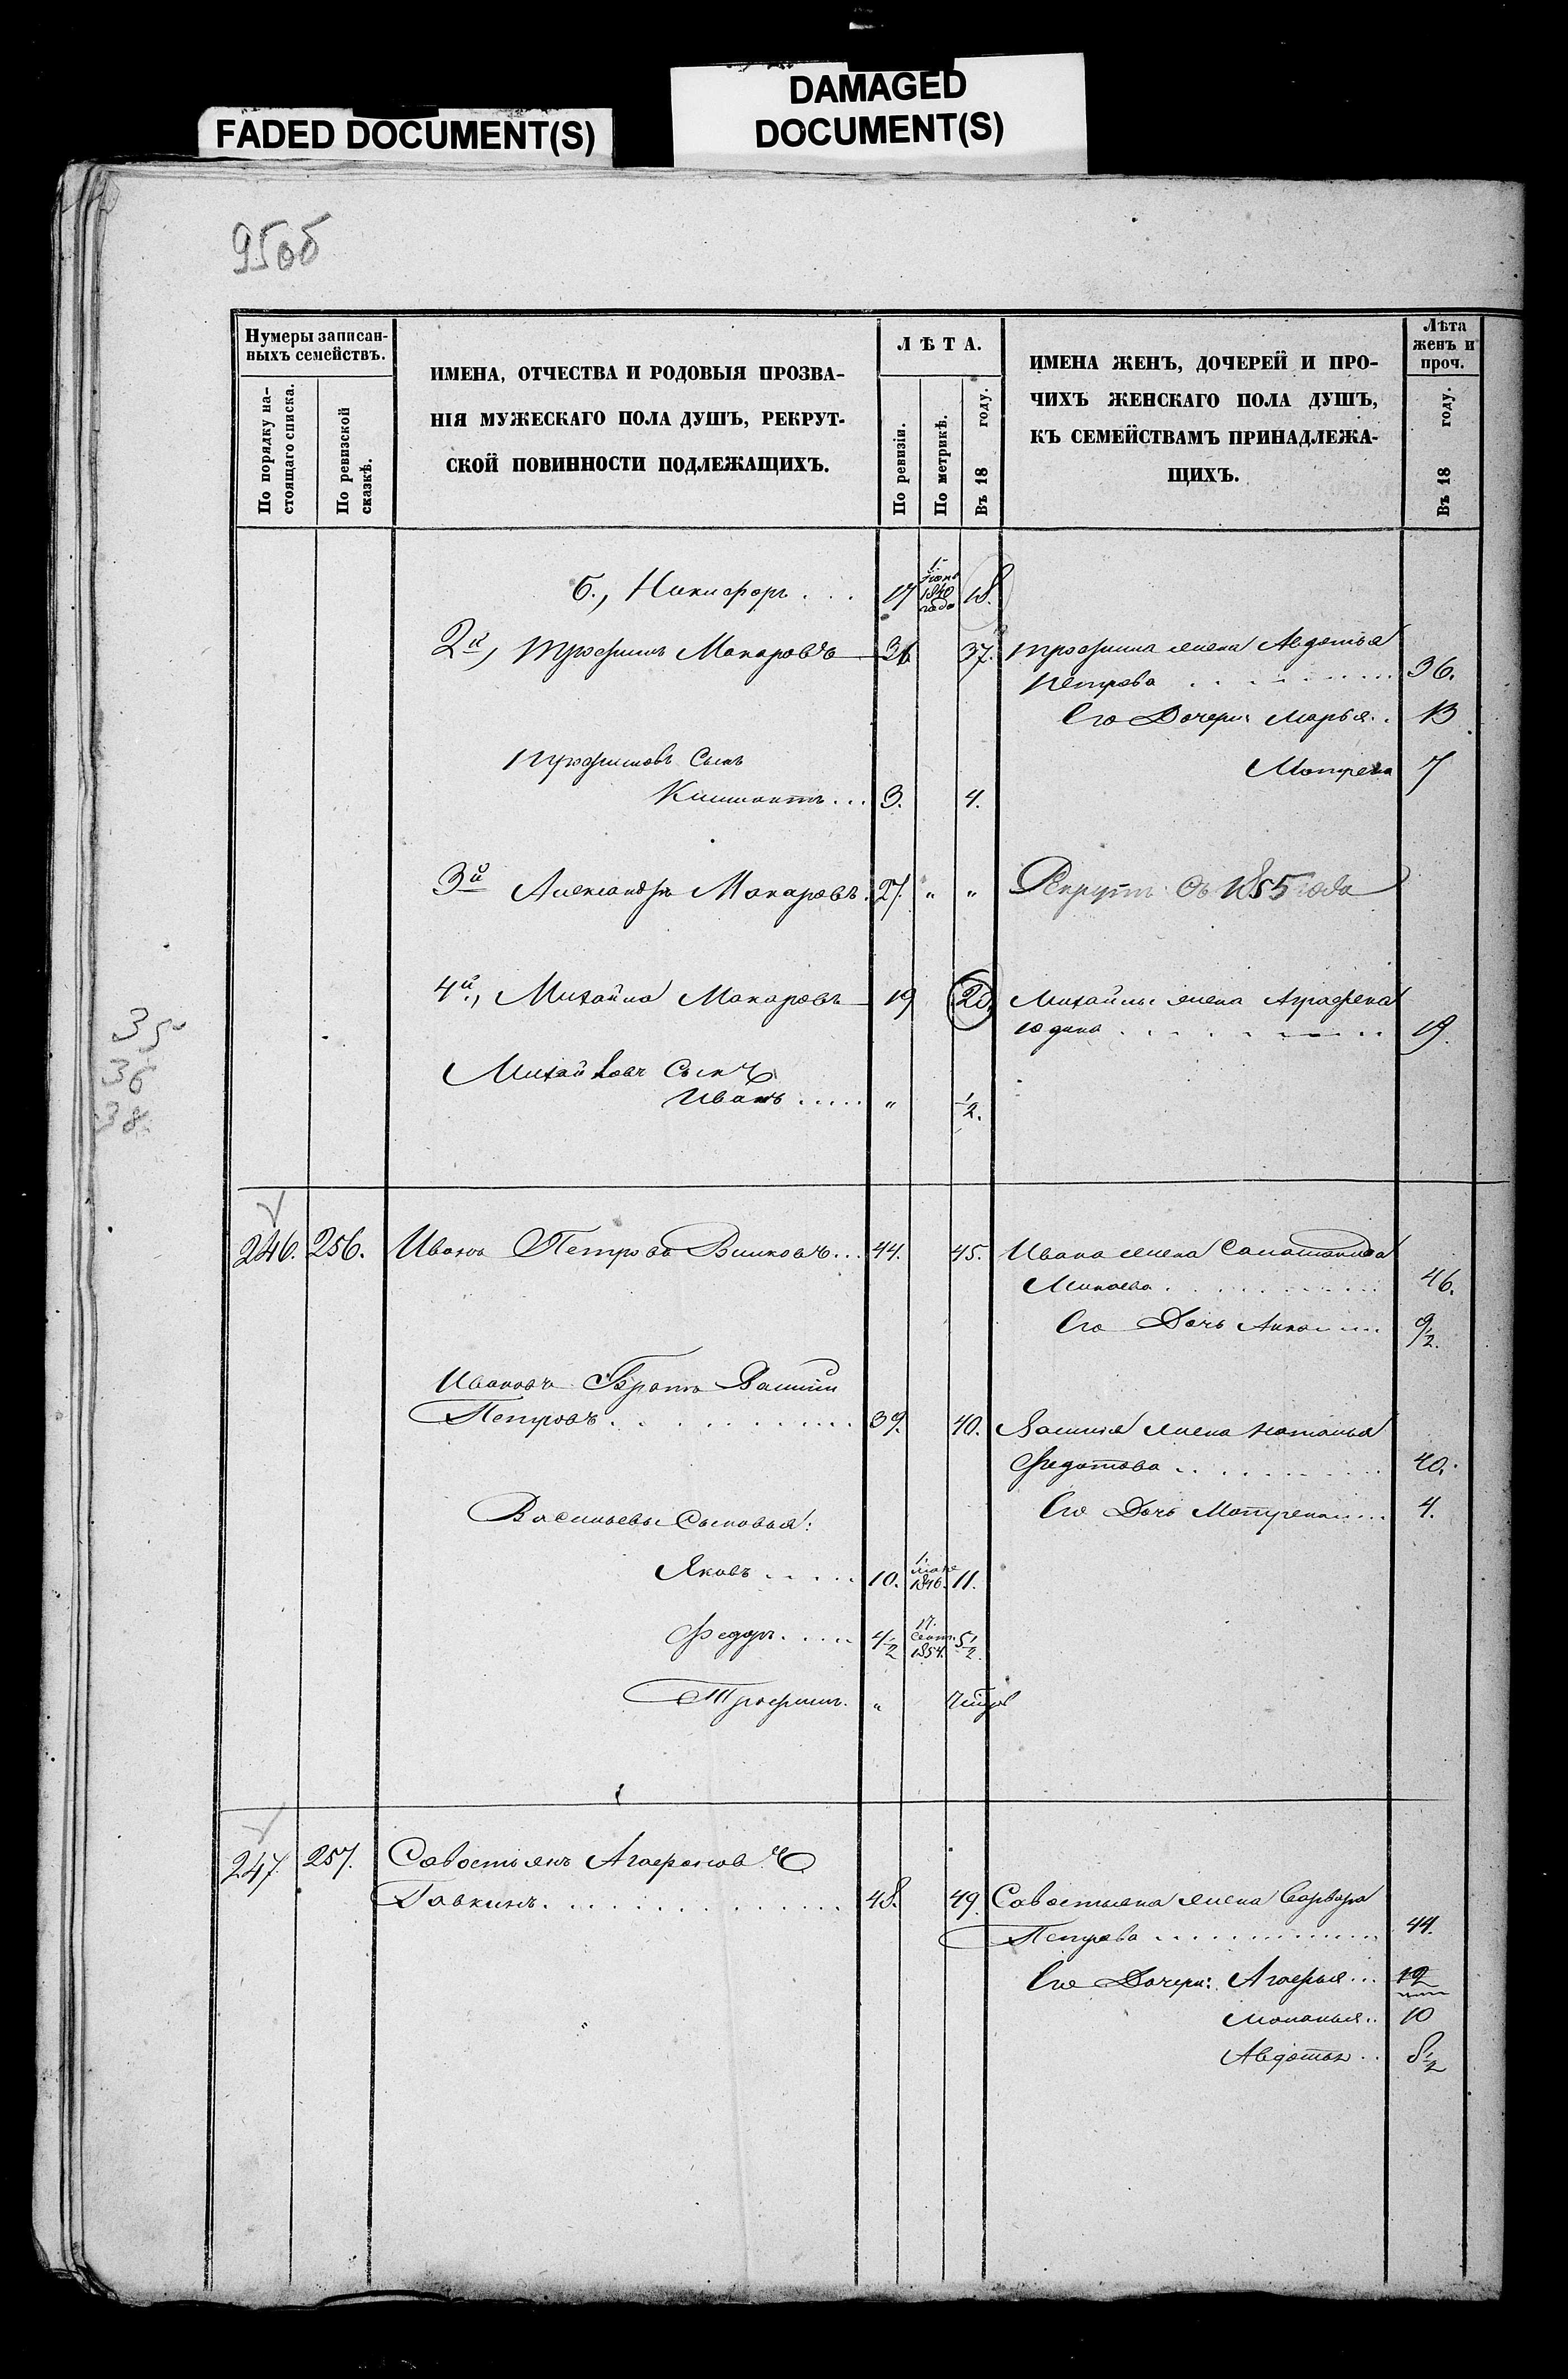 FADED DOCUMENT(S)
DAMAGED
DOCUMENT(S)
95об
Нумеры записан-
ныхъ семействъ.
По порядку на-
стоящаго списка.
По ревизской
сказкѣ.
ИМЕНА, ОТЧЕСТВА И РОДОВЫЯ ПРОЗВА-
НІЯ МУЖЕСКАГО ПОЛА ДУШЪ, РЕКРУТ-
СКОЙ ПОВИННОСТИ ПОДЛЕЖАЩИХЪ.
ЛѢТА.
По ревизіи.
По метрикѣ.
Въ 18 году.
ИМЕНА ЖЕНЪ, ДОЧЕРЕЙ И ПРО-
ЧИХЪ ЖЕНСКАГО ПОЛА ДУШЪ,
КЪ СЕМЕЙСТВАМЪ ПРИНАДЛЕЖА-
ЩИХЪ.
Лѣта
женъ и
проч.
Въ 18 году.
б., Никифоръ . . . 17 1. 1840 года 18.
2й, Трофимъ Макаровъ 36 37. Трофима жена Авдотья
Петрова . . . . . . . 36.
Его Дочери: Марья . . 13
Трофимовъ Сынъ Матрена 7
. . . 3. 4.
3й Александръ Макаровъ. 27. " " Рекрутъ съ 1855 года
4й, Михайла Макаровъ 19 20. Михайлы жена Аграфена
Юдина . . . . . . . 19.
35
36
38
Михайловъ Сынъ
Иванъ . . . . . " 1/2.
246. 256. Иванъ Петровъ . . . 44. 45. Ивана жена
Минаева . . . . . . . 46.
Его Дочь Анна . . . . 9/2.
Ивановъ Братъ Василий
Петровъ . . . . . . . 39. 40. Василья жена Наталья
Федотова . . . . . . . 40.
Его Дочь Матрена . . . . 4.
Васильевы Сыновья:
Яковъ . . . . . 10. 1. 1846. 11.
Федоръ . . . . . 4 1/2 17. Сент. 1854. 5 1/2.
Трофимъ. "
247. 257. Савостьянъ Агафоновъ
Гавкинъ . . . . . . . 48. 49. Савостьяна жена Варвара
Петрова . . . . . . . 44.
Его Дочери: Агафья . . . 12
Маланья . . 10
Авдотья . . 8 1/2